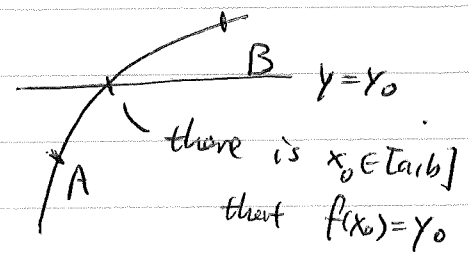 B
y = y₀
there is x₀ ∈ [a,b]
A
that f(x₀) = y₀